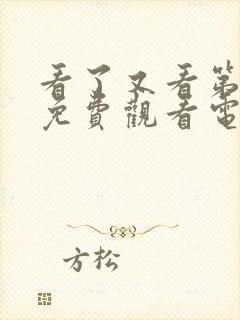 看了又看第
免費觀看電
方松